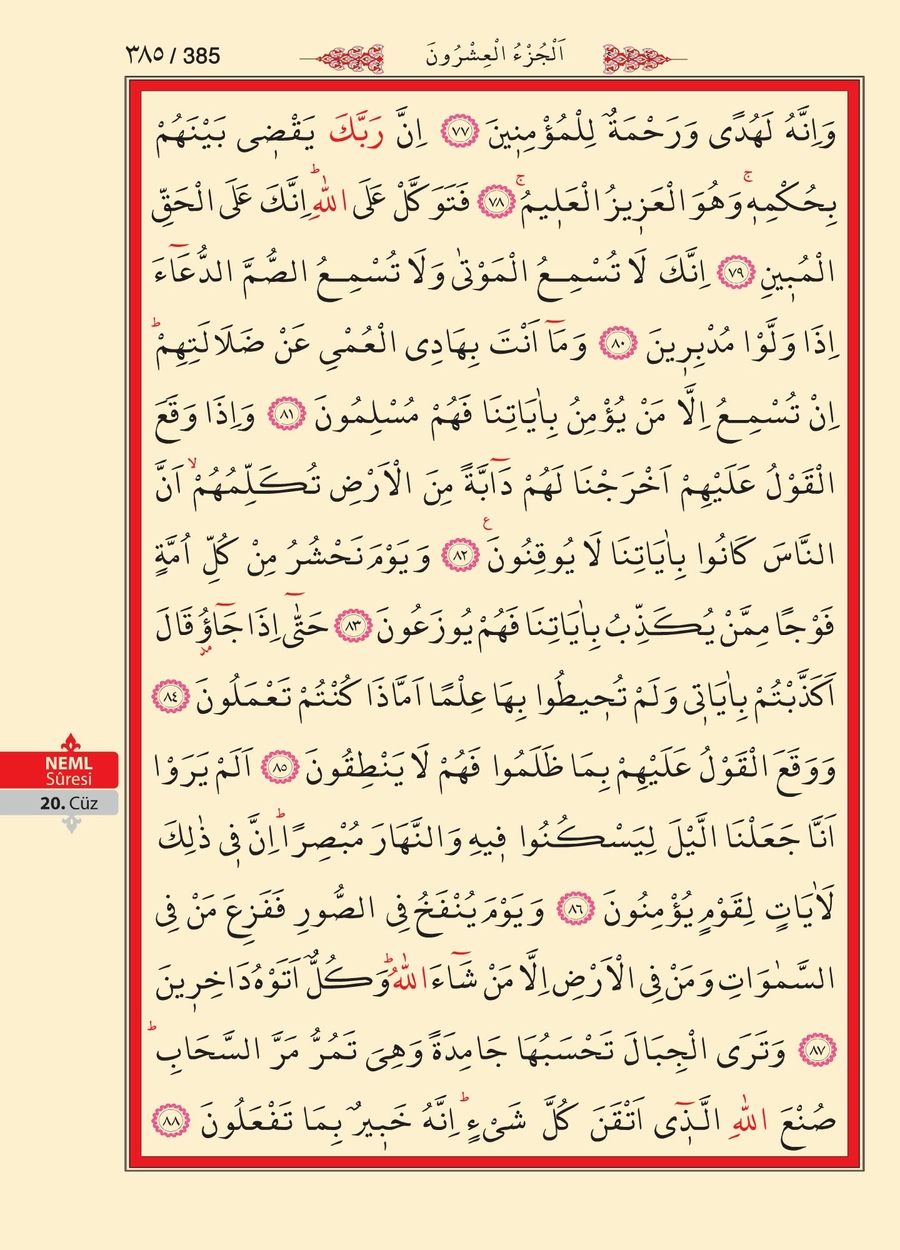 ٣٨٥ / 385
اَلْجُزْءُ الْعِشْرُونَ
وَاِنَّهُ لَهُدًى وَرَحْمَةٌ لِلْمُؤْمِنٖينَ ﴿٧٧﴾ اِنَّ رَبَّكَ يَقْضٖى بَيْنَهُمْ
بِحُكْمِهٖۚ وَهُوَ الْعَزٖيزُ الْعَلٖيمُۚ ﴿٧٨﴾ فَتَوَكَّلْ عَلَى اللّٰهِؕ اِنَّكَ عَلَى الْحَقِّ
الْمُبٖينِ ﴿٧٩﴾ اِنَّكَ لَا تُسْمِعُ الْمَوْتٰى وَلَا تُسْمِعُ الصُّمَّ الدُّعَٓاءَ
اِذَا وَلَّوْا مُدْبِرٖينَ ﴿٨٠﴾ وَمَٓا اَنْتَ بِهَادِى الْعُمْىِ عَنْ ضَلَالَتِهِمْؕ
اِنْ تُسْمِعُ اِلَّا مَنْ يُؤْمِنُ بِاٰيَاتِنَا فَهُمْ مُسْلِمُونَ ﴿٨١﴾ وَاِذَا وَقَعَ
الْقَوْلُ عَلَيْهِمْ اَخْرَجْنَا لَهُمْ دَٓابَّةً مِنَ الْاَرْضِ تُكَلِّمُهُمْۙ اَنَّ
النَّاسَ كَانُوا بِاٰيَاتِنَا لَا يُوقِنُونَ ﴿٨٢﴾ ع وَيَوْمَ نَحْشُرُ مِنْ كُلِّ اُمَّةٍ
فَوْجًا مِمَّنْ يُكَذِّبُ بِاٰيَاتِنَا فَهُمْ يُوزَعُونَ ﴿٨٣﴾ حَتّٰٓى اِذَا جَٓاؤُ۫ قَالَ
اَكَذَّبْتُمْ بِاٰيَاتٖى وَلَمْ تُحٖيطُوا بِهَا عِلْمًا اَمَّاذَا كُنْتُمْ تَعْمَلُونَ ﴿٨٤﴾
وَوَقَعَ الْقَوْلُ عَلَيْهِمْ بِمَا ظَلَمُوا فَهُمْ لَا يَنْطِقُونَ ﴿٨٥﴾ اَلَمْ يَرَوْا
اَنَّا جَعَلْنَا الَّيْلَ لِيَسْكُنُوا فٖيهِ وَالنَّهَارَ مُبْصِرًاؕ اِنَّ فٖى ذٰلِكَ
لَاٰيَاتٍ لِقَوْمٍ يُؤْمِنُونَ ﴿٨٦﴾ وَيَوْمَ يُنْفَخُ فِى الصُّورِ فَفَزِعَ مَنْ فِى
السَّمٰوَاتِ وَمَنْ فِى الْاَرْضِ اِلَّا مَنْ شَٓاءَ اللّٰهُؕ وَكُلٌّ اَتَوْهُ دَاخِرٖينَ
﴿٨٧﴾ وَتَرَى الْجِبَالَ تَحْسَبُهَا جَامِدَةً وَهِىَ تَمُرُّ مَرَّ السَّحَابِؕ
صُنْعَ اللّٰهِ الَّذٖٓى اَتْقَنَ كُلَّ شَىْءٍؕ اِنَّهُ خَبٖيرٌ بِمَا تَفْعَلُونَ ﴿٨٨﴾
NEML
Sûresi
20. Cüz